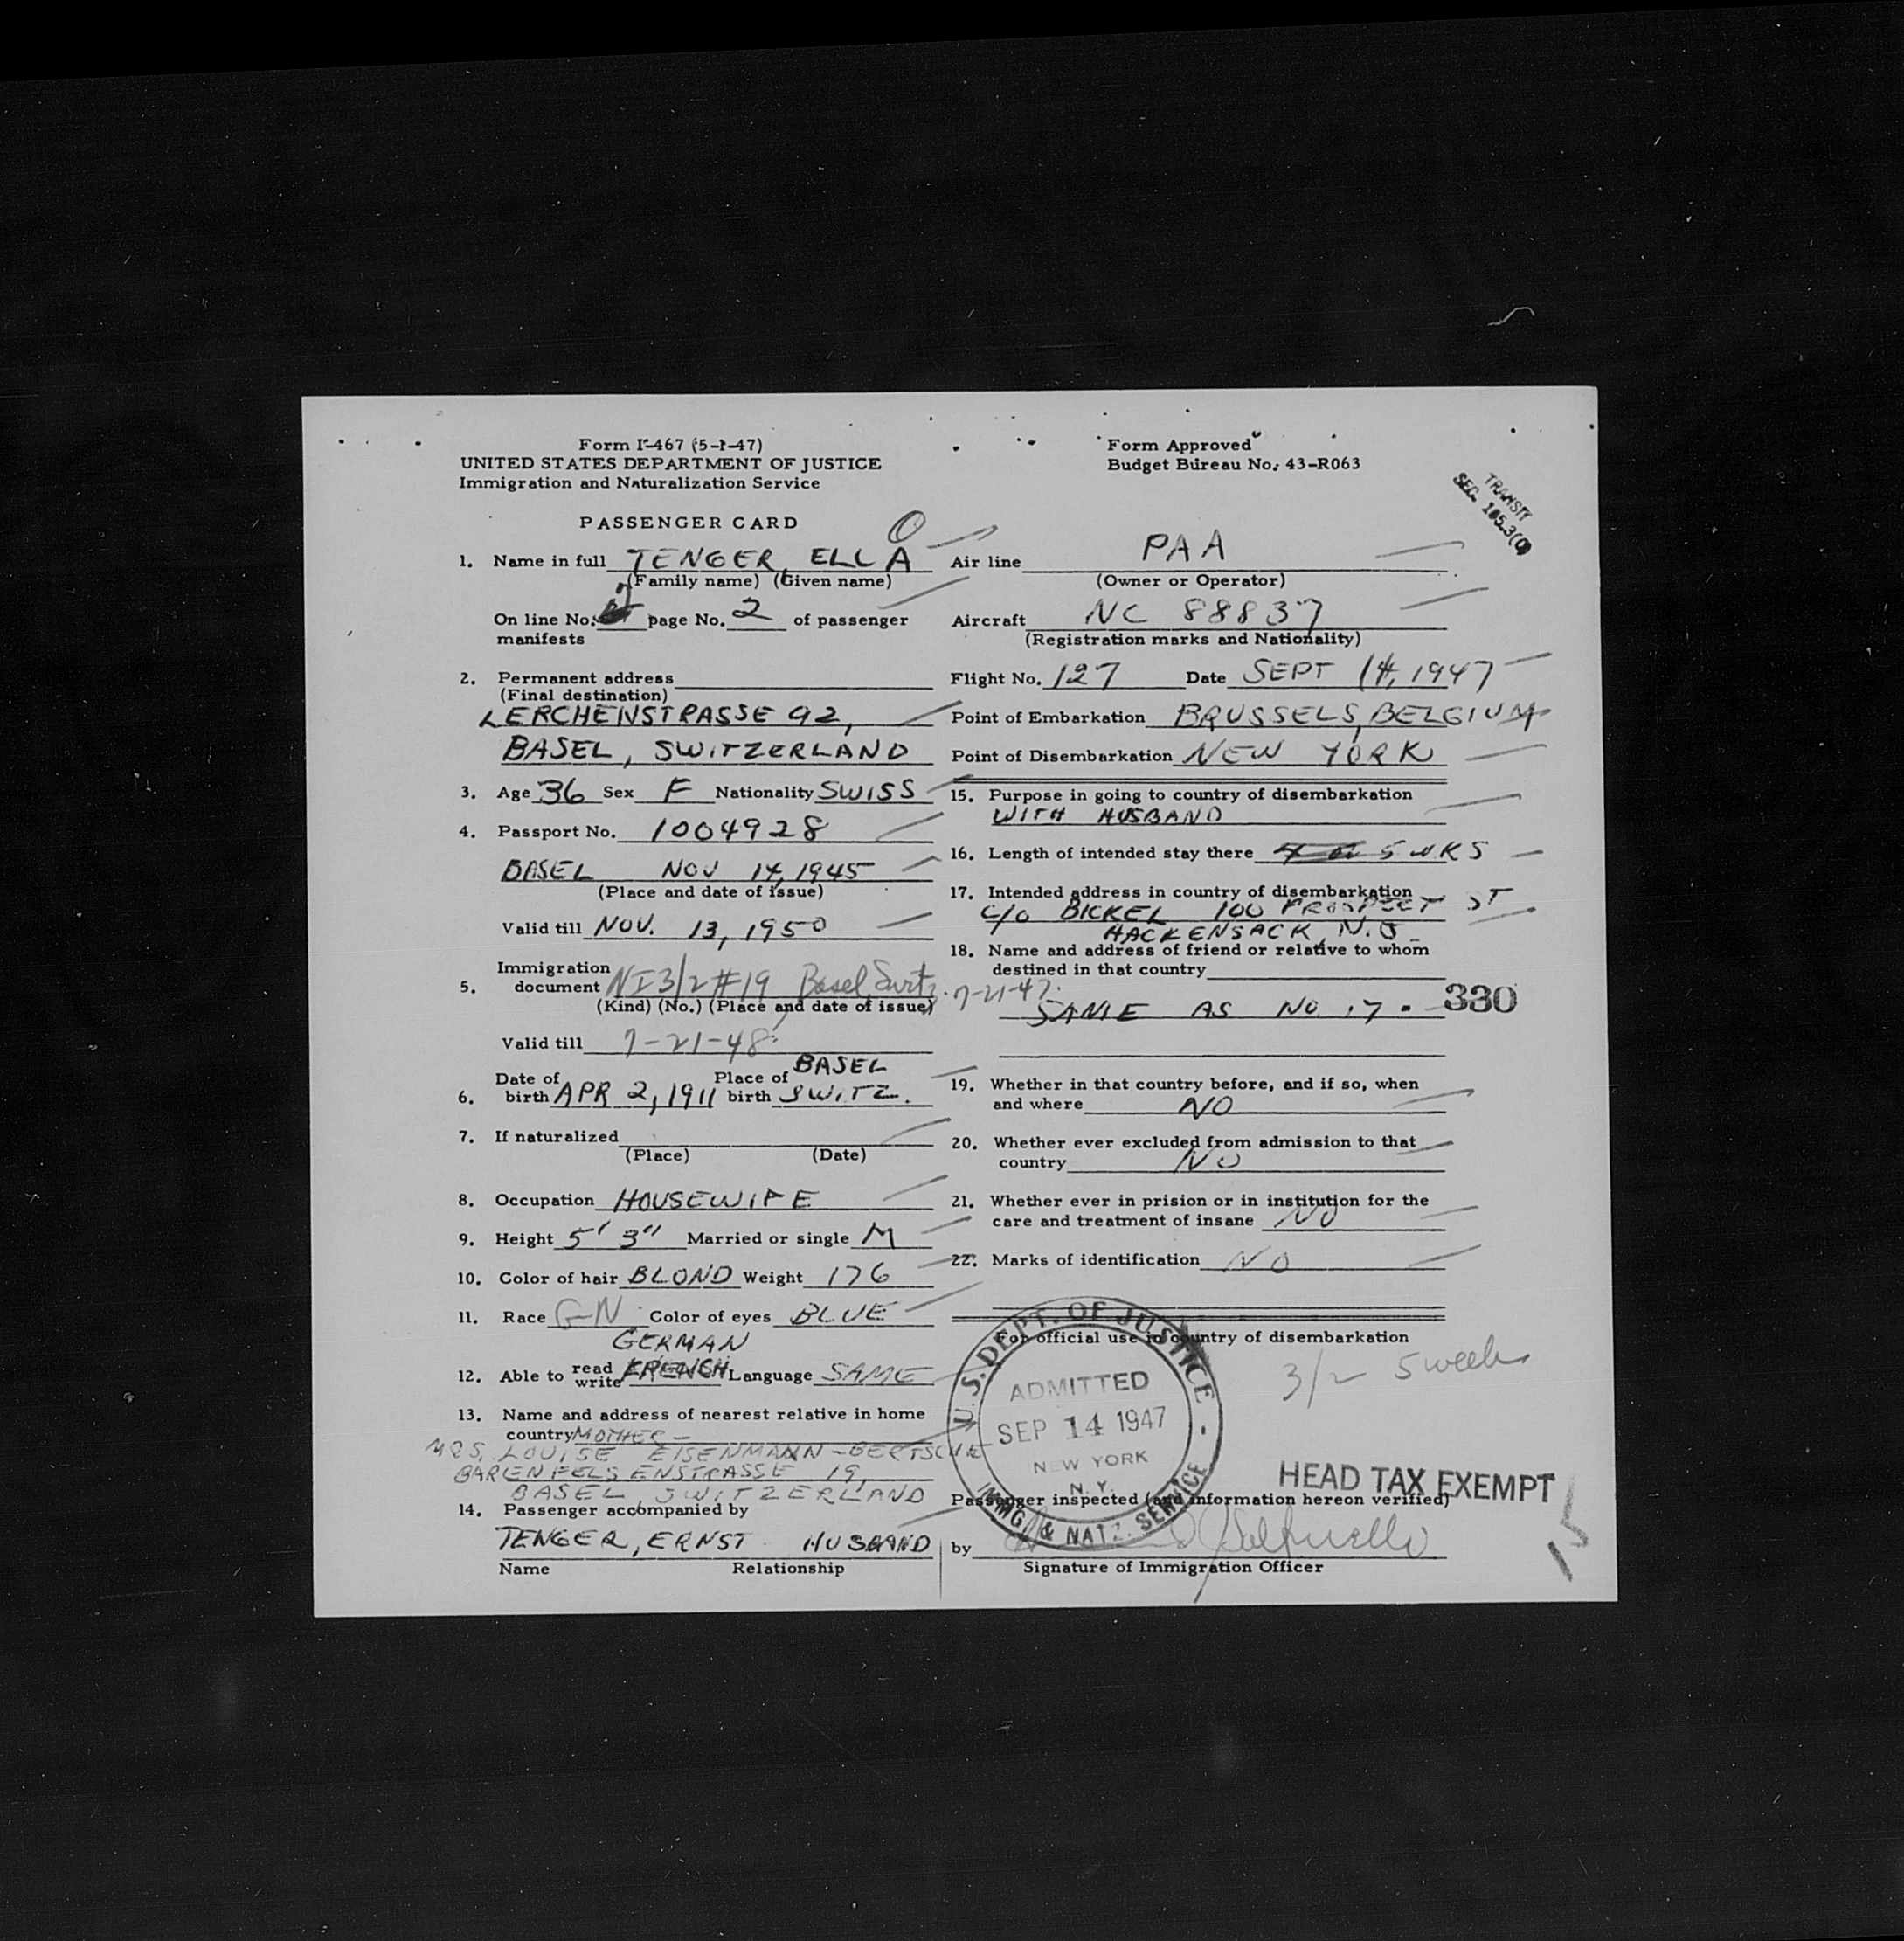 Form I-467 (5-1-47)
UNITED STATES DEPARTMENT OF JUSTICE
Immigration and Naturalization Service
Form Approved
Budget Bureau No. 43-R063
TRANSIT
SEC. 105.3(c)
PASSENGER CARD
1. Name in full TENGER, ELLA
(Family name) (Given name)
On line No. page No. 2 of passenger
manifests
2. Permanent address
(Final destination)
LERCHENSTRASSE 92,
BASEL, SWITZERLAND
3. Age 36 Sex F Nationality SWISS
4. Passport No. 1004928
BASEL NOV 14, 1945
(Place and date of issue)
Valid till NOV. 13, 1950
5. Immigration
document NI 3/2 #19 Basel, Switz. 7-21-47.
(Kind) (No.) (Place and date of issue)
Valid till 7-21-48
6. Date of birth APR 2, 1911 Place of birth BASEL
SWITZ.
7. If naturalized
(Place) (Date)
8. Occupation HOUSEWIFE
9. Height 5' 3" Married or single M
10. Color of hair BLOND Weight 176
11. Race GN Color of eyes BLUE
GERMAN
12. Able to read write FRENCH Language SAME
13. Name and address of nearest relative in home
country MOTHER -
MRS. LOUISE EISENMANN-BERTSCHE
BARENFELSENSTRASSE 19,
BASEL SWITZERLAND
14. Passenger accompanied by
TENGER, ERNST HUSBAND
Name Relationship
Air line PAA
(Owner or Operator)
Aircraft NC 88837
(Registration marks and Nationality)
Flight No. 127 Date SEPT 14, 1947
Point of Embarkation BRUSSELS, BELGIUM
Point of Disembarkation NEW YORK
15. Purpose in going to country of disembarkation
WITH HUSBAND
16. Length of intended stay there 5 WKS
17. Intended address in country of disembarkation
C/O BICKEL 100 PROSPECT ST
HACKENSACK, N.J.
18. Name and address of friend or relative to whom
destined in that country
SAME AS NO 17.
330
19. Whether in that country before, and if so, when
and where NO
20. Whether ever excluded from admission to that
country NO
21. Whether ever in prision or in institution for the
care and treatment of insane NO
22. Marks of identification NO
For official use in country of disembarkation
3/2 5 weeks
U.S. DEPT. OF JUSTICE
ADMITTED
SEP 14 1947
NEW YORK
N.Y.
IMMG. & NATZ. SERVICE
HEAD TAX EXEMPT
Passenger inspected (and information hereon verified)
by
Signature of Immigration Officer
15